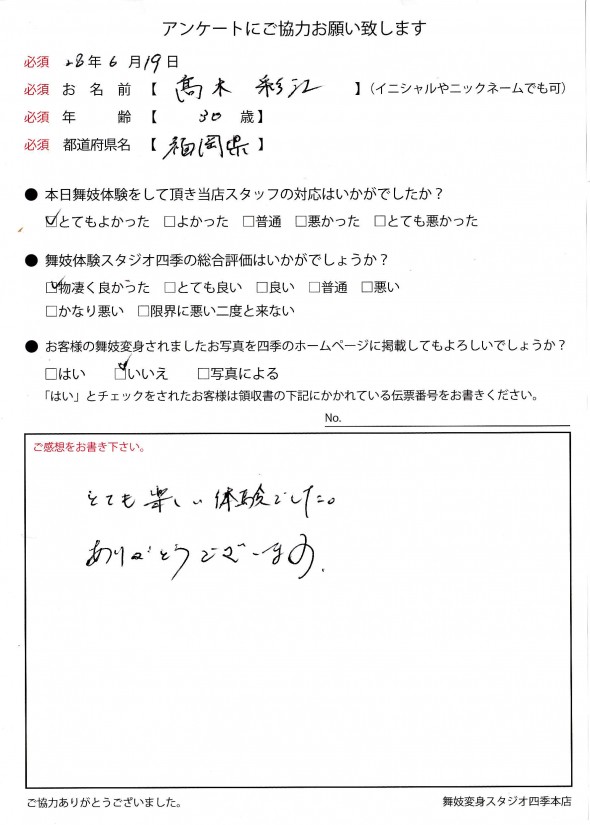 アンケートにご協力お願い致します
必須 28年 6月 19日
必須 お名前 【 髙木 彩江 】（イニシャルやニックネームでも可）
必須 年齢 【 30 歳】
必須 都道府県名 【 福岡県 】
● 本日舞妓体験をして頂き当店スタッフの対応はいかがでしたか？
☑とてもよかった □よかった □普通 □悪かった □とても悪かった
● 舞妓体験スタジオ四季の総合評価はいかがでしょうか？
☑物凄く良かった □とても良い □良い □普通 □悪い
□かなり悪い □限界に悪い二度と来ない
● お客様の舞妓変身されましたお写真を四季のホームページに掲載してもよろしいでしょうか？
□はい ☑いいえ □写真による
「はい」とチェックをされたお客様は領収書の下記にかかれている伝票番号をお書きください。
No.
ご感想をお書き下さい。
とても楽しい体験でした。
ありがとうございます.
ご協力ありがとうございました。 舞妓変身スタジオ四季本店